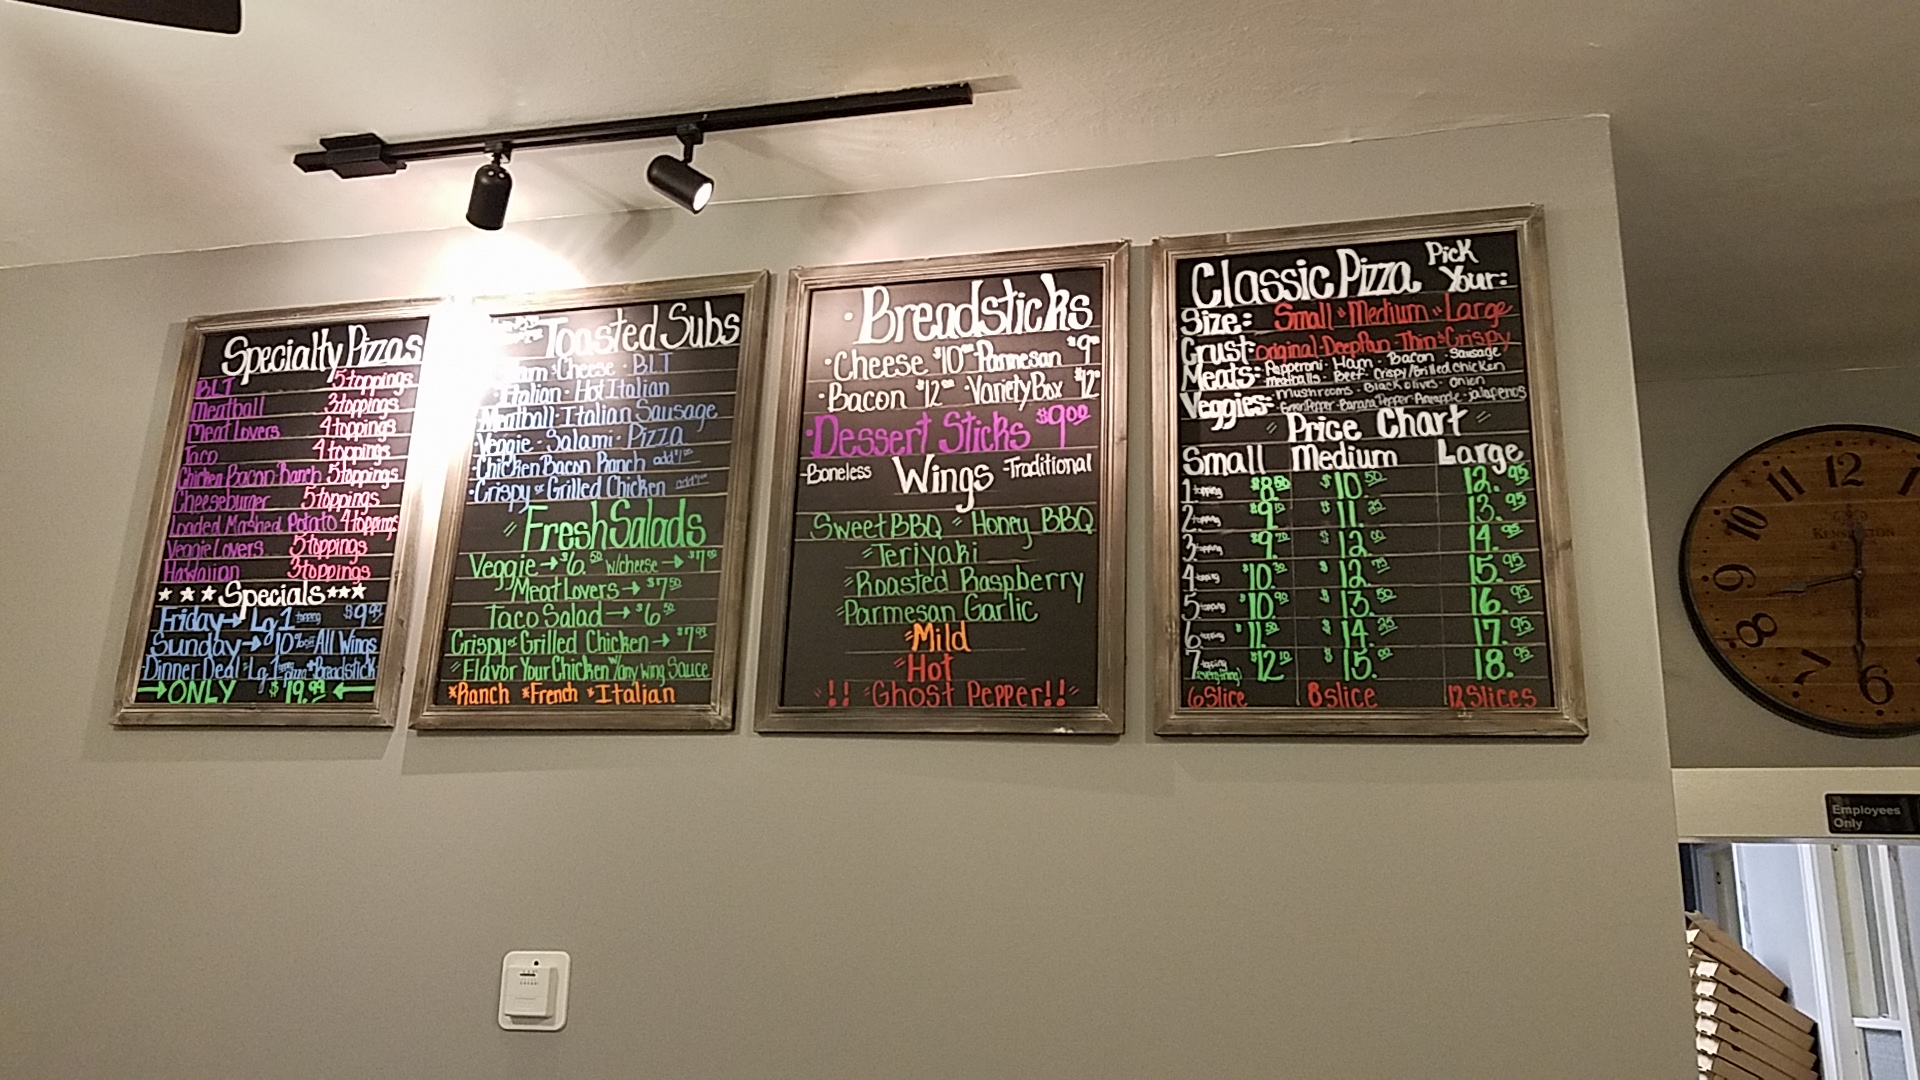 Specialty Pizzas
BLT 5 toppings
Meatball 3 toppings
Meat Lovers 4 toppings
Taco 4 toppings
Chicken Bacon Ranch 5 toppings
Cheeseburger 5 toppings
Loaded Mashed Potato 4 toppings
Veggie Lovers 5 toppings
Hawaiian 3 toppings
Specials
Friday → Lg 1 topping $9.99
Sunday → 10% off All Wings
Dinner Deal Lg 1 Breadstick
→ ONLY $19.99 ←
Toasted Subs
Cheese · BLT
Italian · Hot Italian
Meatball · Italian Sausage
Veggie · Salami · Pizza
·Chicken Bacon Ranch add
·Crispy or Grilled Chicken add
Fresh Salads
Veggie → $6.50 w/cheese → $7.00
Meat Lovers → $7.50
Taco Salad → $6.50
Crispy or Grilled Chicken → $7.99
Flavor Your Chicken w/any wing Sauce
*Ranch *French *Italian
·Breadsticks
·Cheese $10 ·Parmesan $9
·Bacon $12 ·Variety Box $12
·Dessert Sticks $9.00
·Boneless Wings ·Traditional
Sweet BBQ Honey BBQ
Teriyaki
Roasted Raspberry
Parmesan Garlic
Mild
Hot
!! Ghost Pepper!!
Classic Pizza Pick Your:
Size: Small Medium Large
Crust: Original · Deep Pan · Thin & Crispy
Meats: Pepperoni · Ham · Bacon · Sausage
meatballs · Beef · Crispy/Grilled chicken
Veggies: mushrooms · Black olives · onion
Green Pepper · Banana Pepper · Pineapple · jalapenos
Price Chart
Small Medium Large
1 topping $8.50 $10.50 12.95
2 topping $9. $11. 13.95
3 topping $9. $12.00 14.95
4 topping $10. $12. 15.95
5 topping $10. $13.50 16.95
6 topping $11.50 $14.25 17.95
7 topping (everything) $12. $15.00 18.95
6 Slice 8 slice 12 Slices
11 12 1
10
9
8
7 6
KENSINGTON
Employees
Only